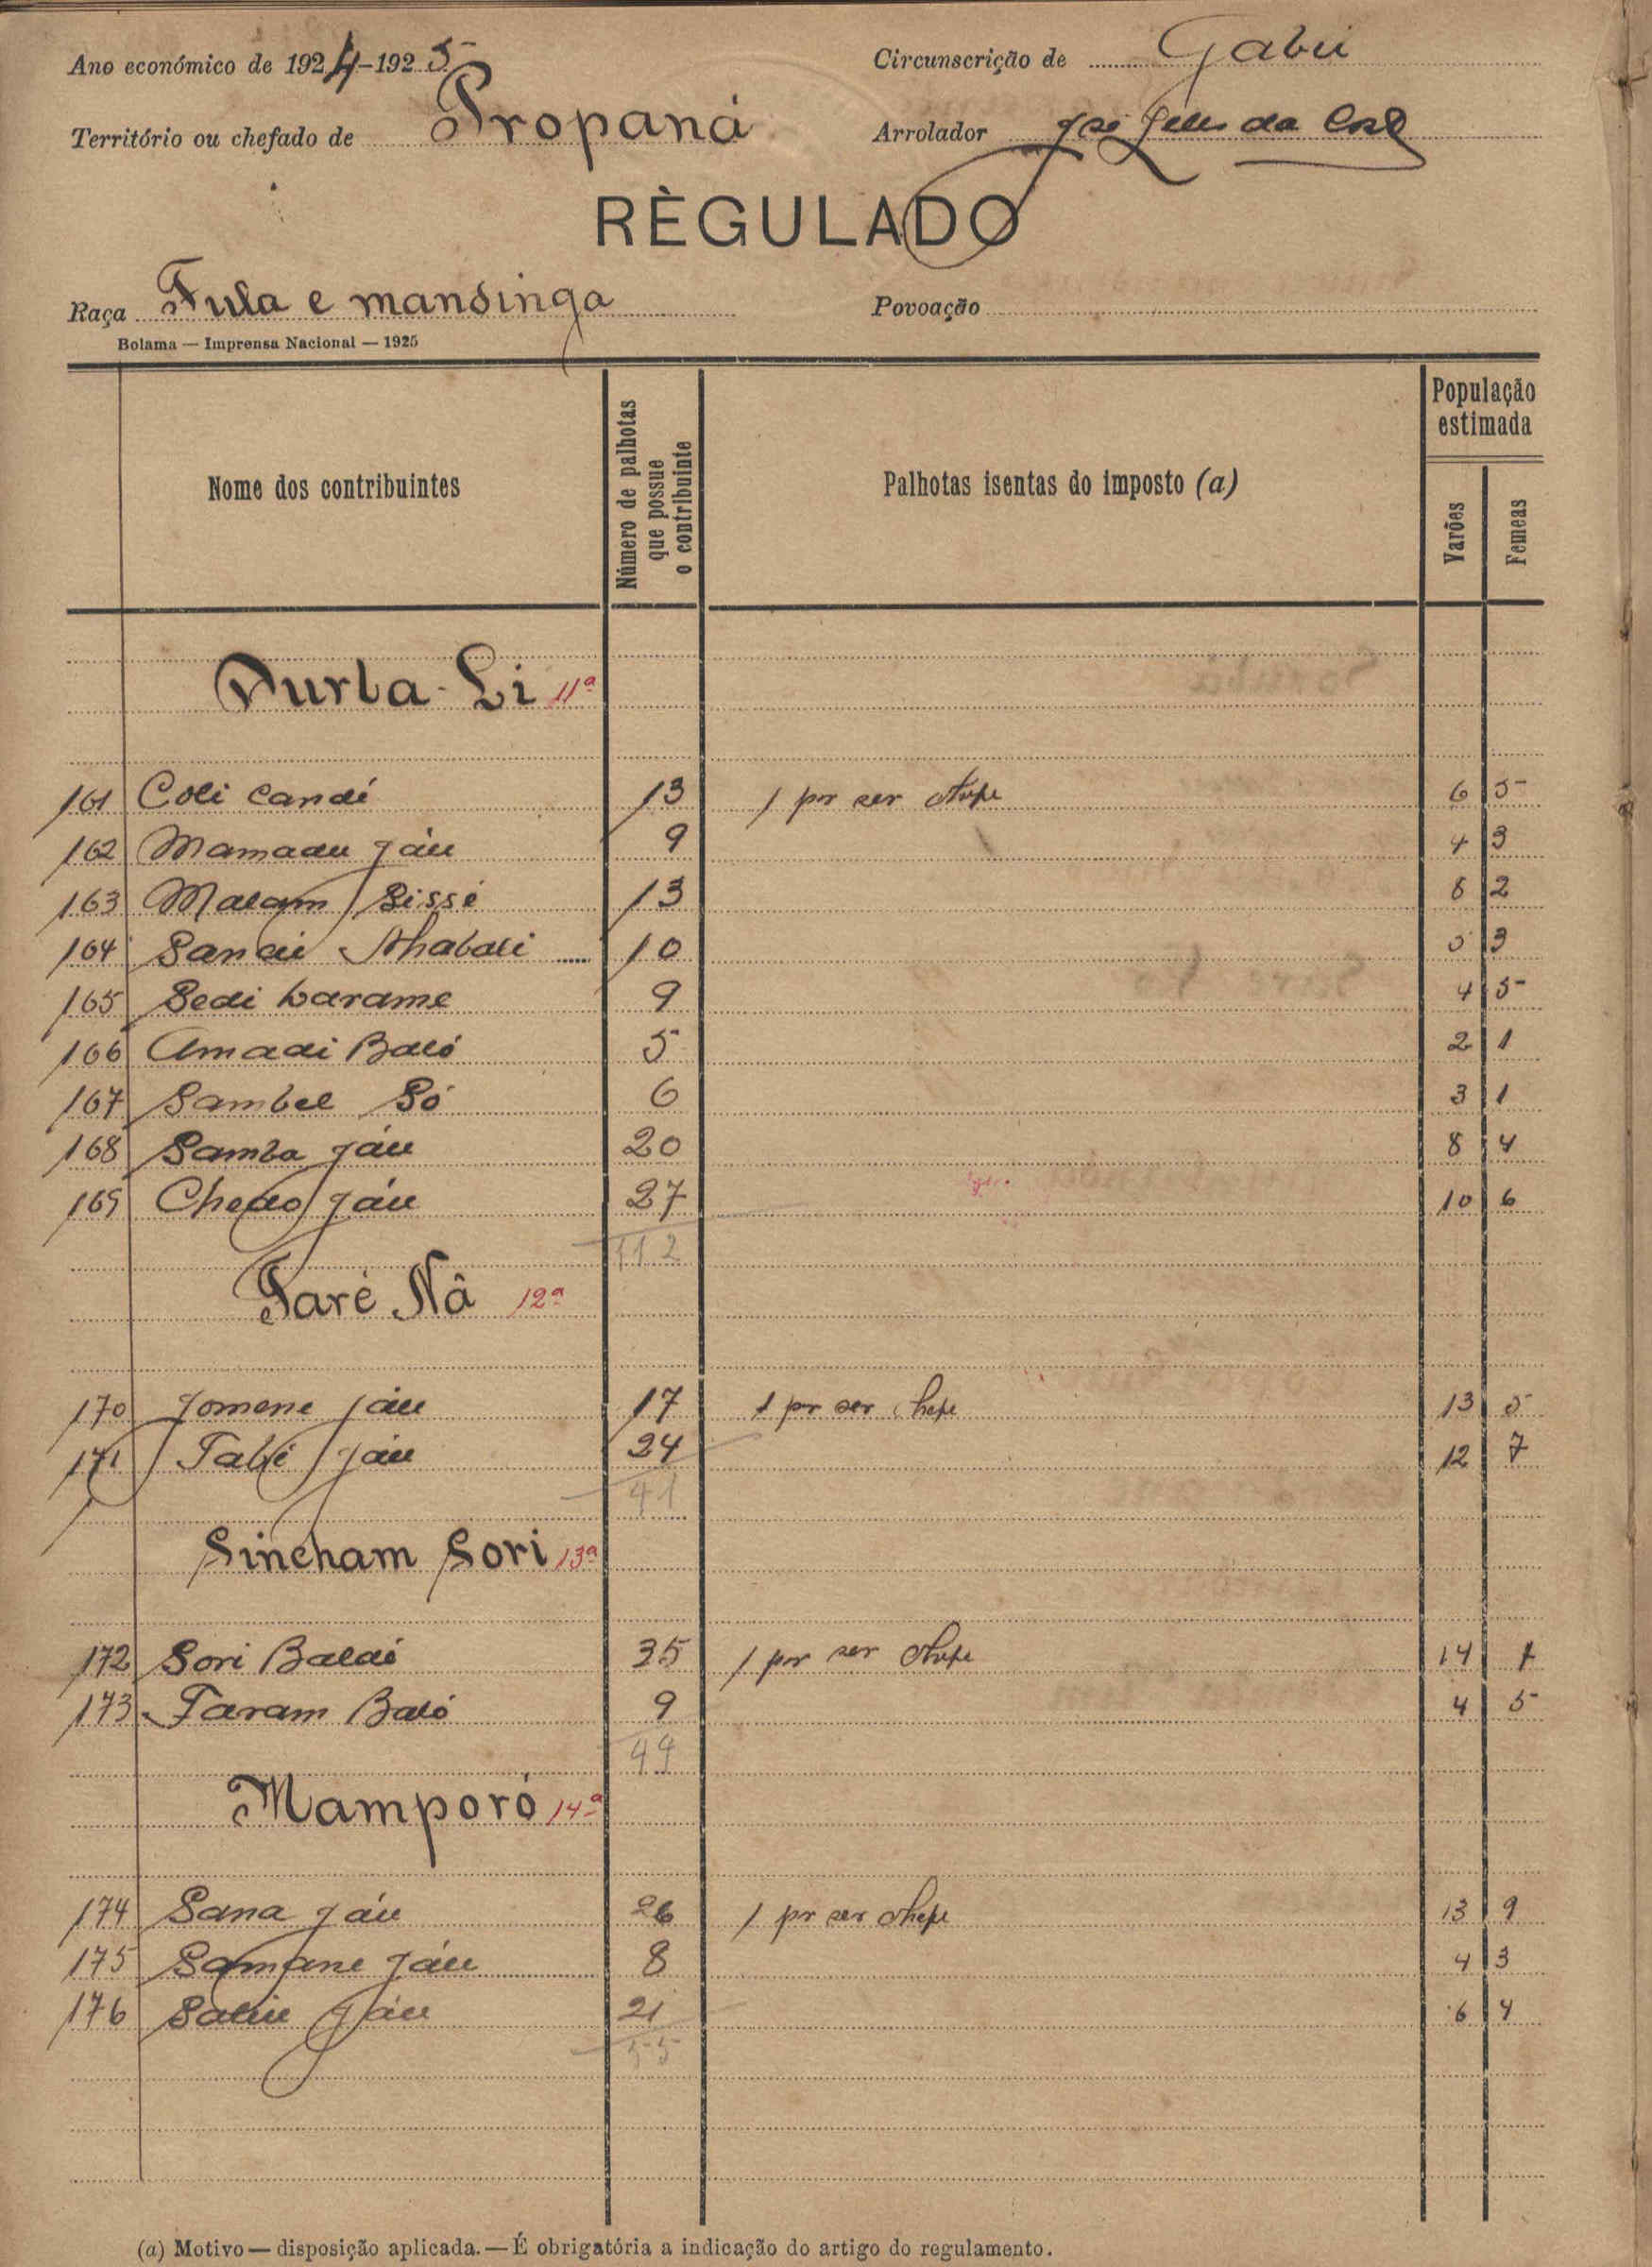 Ano económico de 1924-1925 Circunscrição de Gabú
Território ou chefado de Propaná Arrolador José da
RÈGULADO
Raça Fula e mandinga Povoação
Bolama — Imprensa Nacional — 1925
Nome dos contribuintes
Número de palhotas que possue o contribuinte
Palhotas isentas do imposto (a)
População estimada
Varões
Femeas
Durba-Li 11ª
161 Coli Candé 13 1 por ser chefe 6 5
162 Mamadu Jáu 9 4 3
163 Malam Sissé 13 2
164 Sanai 10 5 3
165 Sedi 9 4 5
166 Amadi Baló 5 2 1
167 Sambel Só 6 3 1
168 Samba Jáu 20 8 4
169 Jáu 27 10 6
112
Saré Nã 12ª
170 Jomene Jáu 17 1 por ser chefe 13 5
171 Jáu 24 12 7
41
Sincham Sori 13ª
172 Sori Baldé 35 1 por ser chefe 14
173 Faram Baló 9 4 5
44
Mamporó 14ª
174 Sana Jáu 26 1 por ser chefe 13 9
175 Samane Jáu 8 4 3
176 Saliu Jáu 21 6 4
55
(a) Motivo — disposição aplicada. — É obrigatória a indicação do artigo do regulamento.